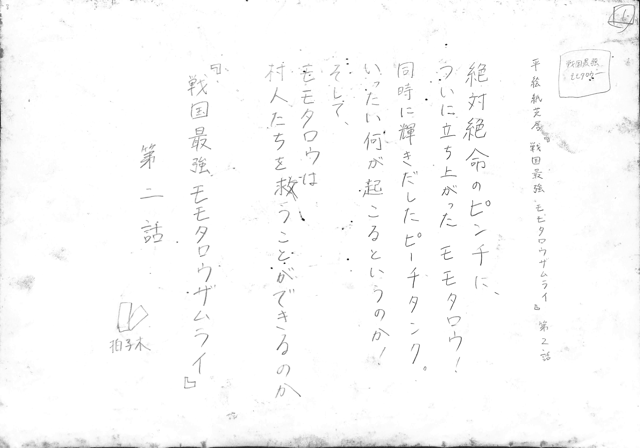 6
戦国最強
平絵紙芝居『戦国最強モモタロウザムライ』第2話
絶対絶命のピンチに、
ついに立ち上がったモモタロウ！
同時に輝きだしたピーチタンク。
いったい何が起こるというのか！
そして、
モモタロウは
村人たちを救うことができるのか
『戦国最強モモタロウザムライ』
第二話
拍子木